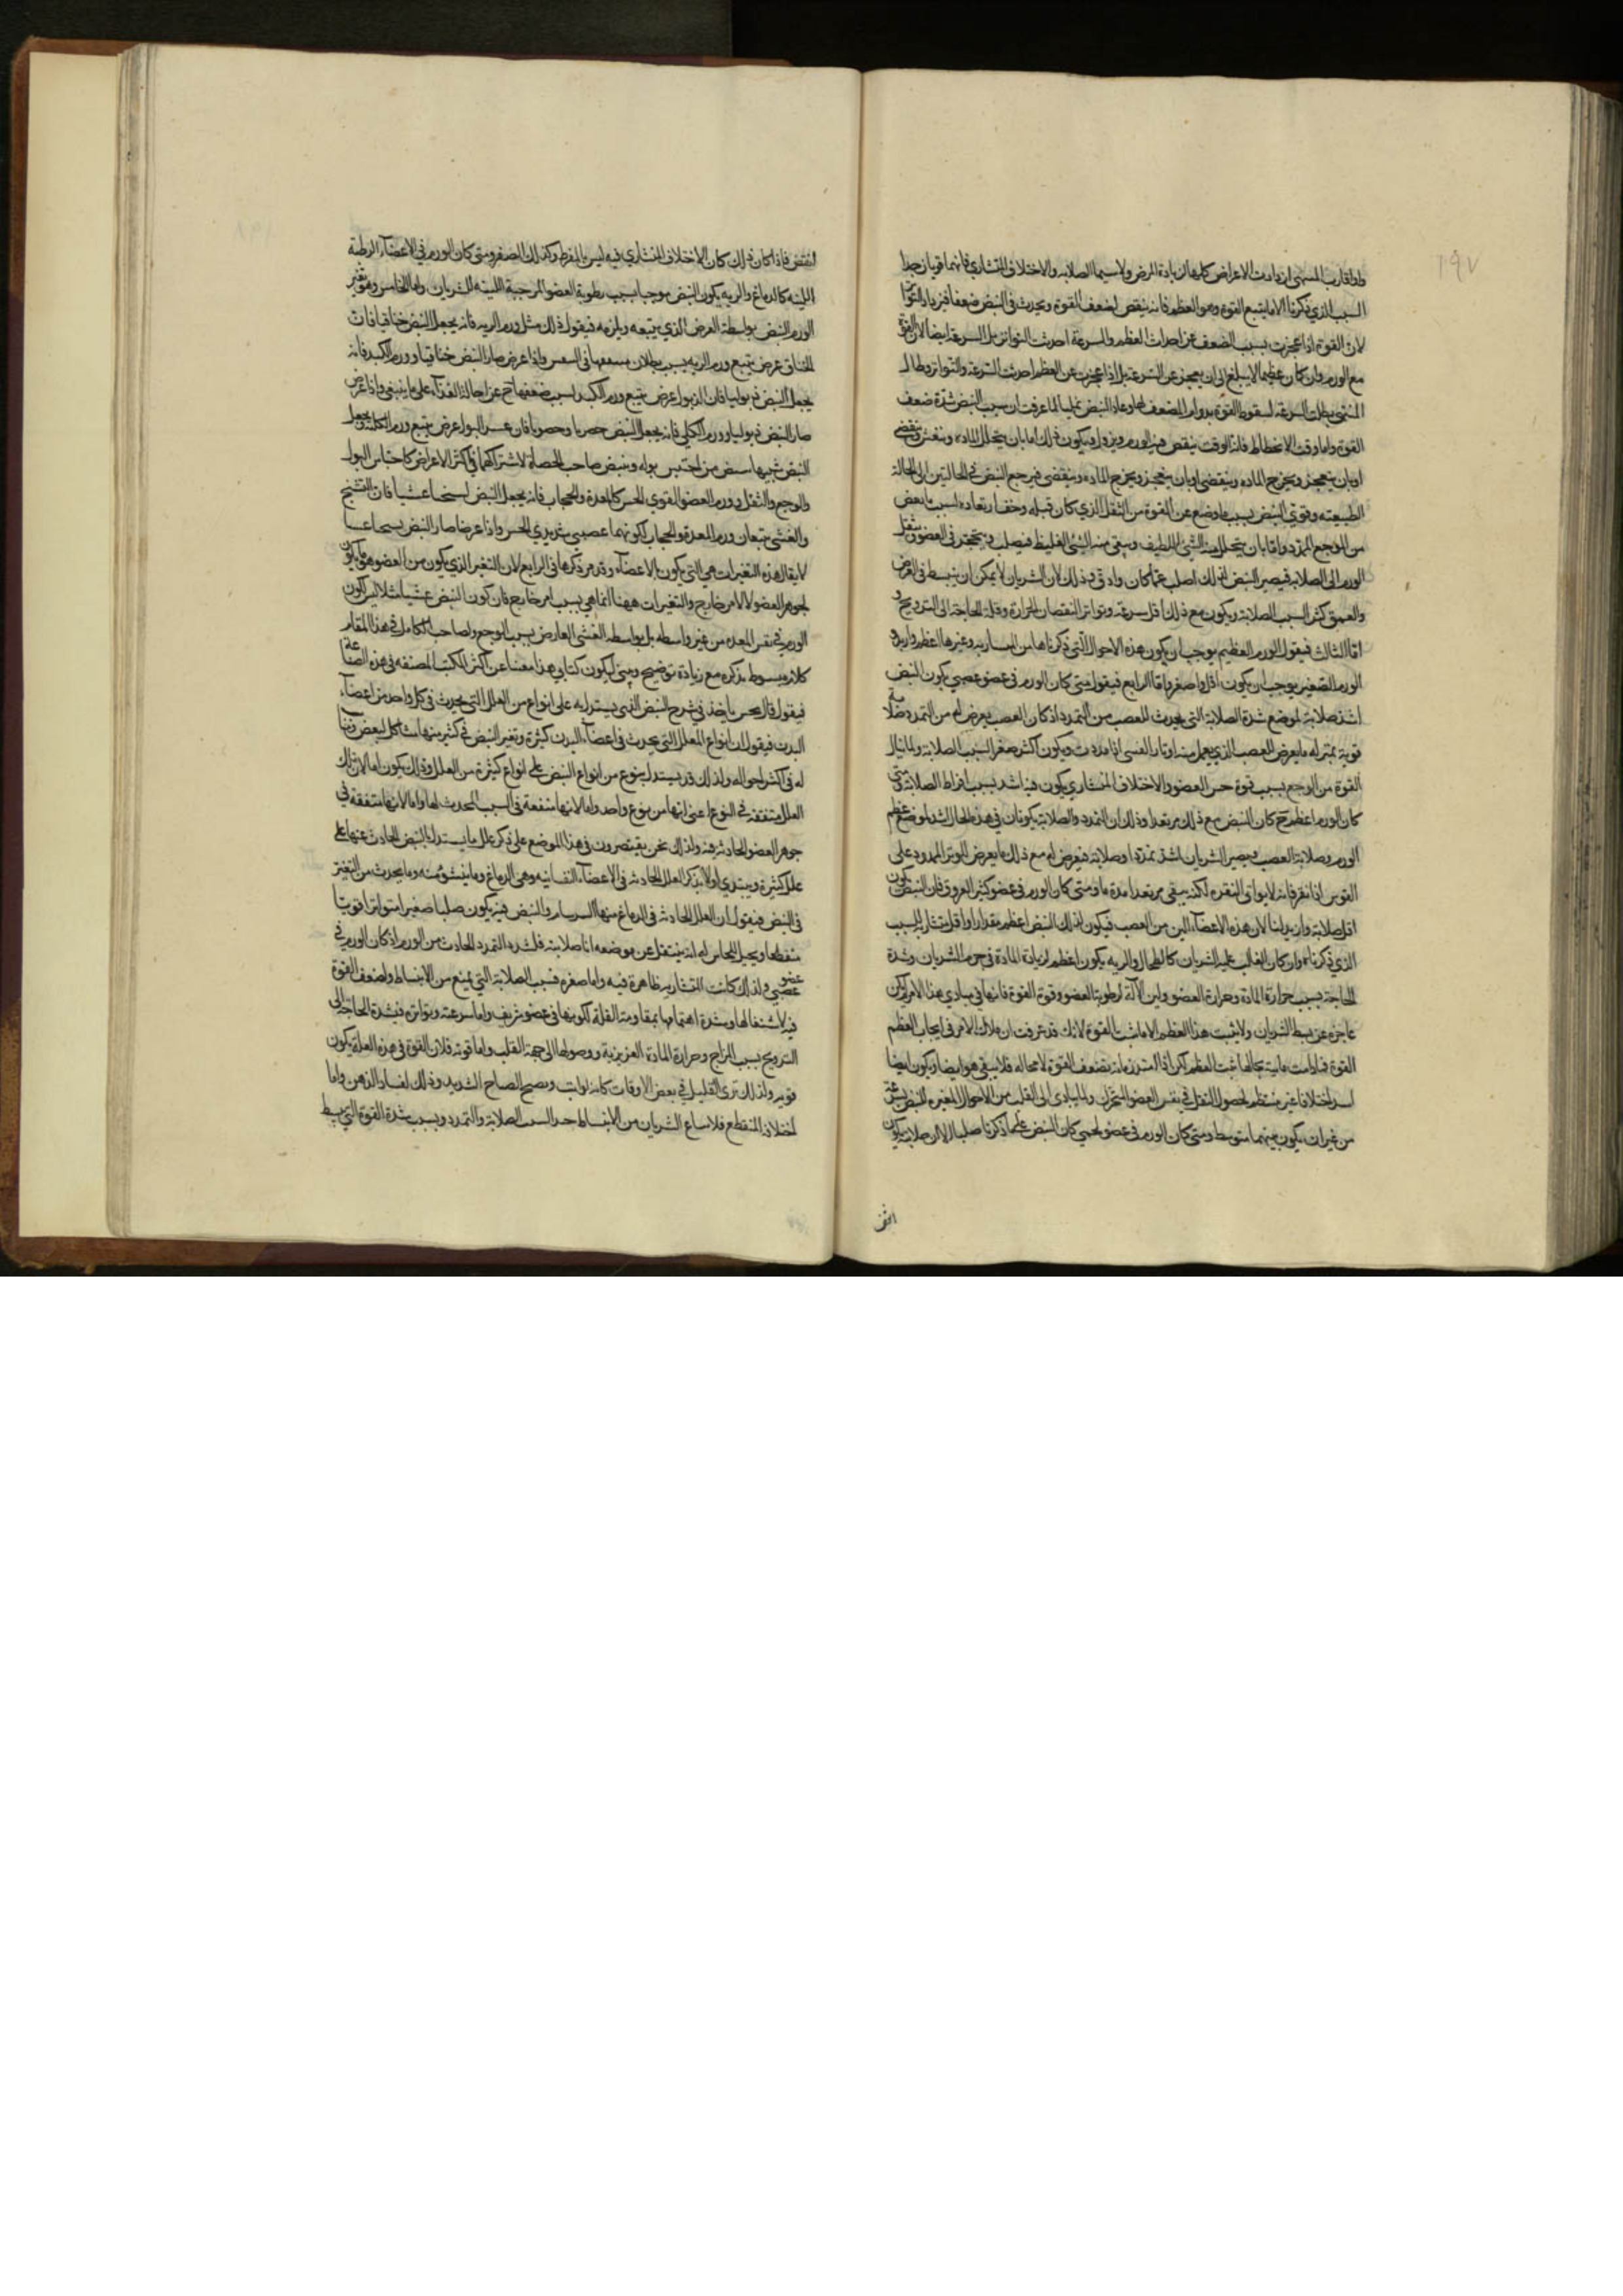 ١٩٧
واذا قارب المنتهى ازدادت الاعراض كلها لزيادة المرض ولاسيما الصلابه والاختلاف المنشاري فانهما قويان جدا
السبب الذي ذكرنا الا ما يتبع القوة وهو العظم فانه ينقص لضعف القوة ويحدث في النبض ضعفا فيزداد التواتر
لان القوة اذا عجزت بسبب الضعف عن احداث العظم والسرعة احدثت التواتر بل السرعة ايضا لان القوة
مع الورم وان كان عظيما لا يبلغ الى ان يعجز عن السرعة بل اذا عجزت عن العظم احدثت السرعة والتواتر وطال
المنتهى بطلت السرعة لسقوط القوة بدوام المضعف لها وعاد النبض نمليا لما عرفت ان سبب النبض شدة ضعف
القوة واما وقت الانحطاط فانه الوقت ينقص فيه الورم ويزول ويكون ذلك اما بان يتحلل المادة وينفش وينقضي
او بان ينفجر ويخرج المادة وينقضي فيرجع النبض في الحالتين الى الحالة
الطبيعيه وقوي النبض بسبب ما وضع عن القوة من الثقل الذي كان قبله
من الوجع الممدد واما بان يتحلل منه الشئ اللطيف ويبقى منه الشئ الغليظ فيصلب ويتحجر في العضو وينتقل
الورم الى الصلابة فيصير النبض لذلك اصلب مما كان وادق وذلك لان الشريان لا يمكن ان ينبسط في العرض
والعمق كثيرا بسبب الصلابة ويكون مع ذلك اقل سرعة وتواترا لنقصان الحرارة وقلة الحاجة الى الترويح و
اما الثالث فيقول الورم العظيم يوجب ان يكون هذه الاحوال التي ذكرناها من المنشاريه وغيرها اعظم وازيد و
الورم الصغير يوجب ان يكون اقل واصغر واما الرابع فيقول متى كان الورم في عضو عصبي يكون النبض
اشد صلابة لموضع شدة الصلابة التي يحدث للعصب من التمدد اذ كان العصب يعرض له من التمدد صلابة
قوية بمنزلة ما يعرض للعصب الذي يعمل منه اوتار القسي اذا مددت ويكون اكثر صغرا لسبب الصلابة ولما ينال
القوة من الوجع بسبب قوة حس العضو والاختلاف المنشاري يكون فيه اشد بسبب افراط الصلابة ومتى
كان الورم اعظم كان النبض مع ذلك مرتعدا وذلك ان التمدد والصلابة يكونان في هذه الحال اشد لموضع عظم
الورم وصلابة العصب ويصير الشريان اشد تمددا وصلابة فيعرض له مع ذلك ما يعرض للوتر الممدود على
القوس اذا نقر فانه لا يواتي النقره لكنه يبقى مرتعدا مدة ما ومتى كان الورم في عضو كثير العروق فان النبض يكون
اقل صلابة وازيد لينا لان هذه الاعضاء الين من العصب فيكون لذلك النبض اعظم مقدارا واقل منشارية للسبب
الذي ذكرناه وان كان الغالب عليه الشريان كالطحال والريه يكون اعظم لزيادة المادة في جرم الشريان وشدة
الحاجة بسبب حرارة المادة وحرارة العضو ولين الآلة لرطوبة العضو وقوة القوة فانها في مبادي هذا الامر لم يكن
عاجزة عن بسط الشريان ولا يثبت هذا العظم الا ما ثبت القوة لانك قد عرفت ان ملاك الامر في ايجاب العظم
القوة فما دامت ثابتة بحالها ثبت العظم لكن اذا اشتد فانه يضعف القوة لا محاله فلا يبقى هو ايضا ويكون ايضا
اختلافا غير منتظم لحصول الثقل في نفس العضو المتحرك
من غير ان يكون بينهما متوسط ومتى كان الورم في عضو لحمي كان النبض على ما ذكرنا صلبا الا ان صلابته يكون
انقض
انقص فاذا كان ذلك كان الاختلاف المنشاري فيه ليس بالمفرط وكذلك الصغر ومتى كان الورم في الاعضاء الرطبة
اللينه كالدماغ والريه يكون النبض موجيا بسبب رطوبة العضو الموجبة اللينه للشريان واما الخامس وهو تغير
الورم النبض بواسطة العرض الذي يتبعه ويلزمه فيقول ذلك مثل ورم الريه فانه يجعل النبض خناقيا فان
الخناق عرض يتبع ورم الريه بسبب بطلان منفعتها في التنفس واذا عرض صار النبض خناقيا وورم الكبد فانه
يجعل النبض ذبوليا فان الذبول عرض يتبع ورم الكبد بسبب ضعفها عن احالة الغذاء على ما ينبغي واذا عرض
صار النبض ذبوليا وورم الكلي فانه يجعل النبض حصريا وحصويا فان عسر البول عرض يتبع ورم الكلية ويجعل
النبض شبيها بنبض من احتبس بوله ونبض صاحب الحصاة لاشتراكهما في اكثر الاعراض كاحتباس البول
والوجع والثقل وورم العضو القوي الحس كالمعدة والحجاب فانه يجعل النبض تشنجيا غشييا فان التشنج
والغشى يتبعان ورم المعدة والحجاب لكونهما عصبي شديدي الحس واذا عرضا صار النبض تشنجيا غشيا
لا يقال هذه التغيرات هي التي يكون بالاعضاء وقد مر ذكرها في الرابع لان التغير الذي يكون من العضو هو ما يكون
لجوهر العضو لا لامر خارج والتغيرات ههنا انما هي بسبب امر خارج فان كون النبض غشييا مثلا ليس لكون
الورم في نفس المعدة من غير واسطه بل بواسطة الغشى العارض بسبب الوجع ولصاحب الكامل في هذا المقام
كلام مبسوط نذكره مع زيادة توضيح وتبيين ليكون كتابي هذا مغنيا عن اكثر الكتب المصنفه في هذه الصناعة
فيقول قال نحن ناخذ في شرح النبض الذي يستدل به على انواع من العلل التي يحدث في كل واحد من اعضاء
البدن فيقول ان انواع العلل التي يحدث في اعضاء البدن كثيرة وتغير النبض في كثير منها مشاكل لبعض
له في اكثر احواله ولذلك قد يستدل بنوع من انواع النبض على انواع كثيرة من العلل وذلك يكون اما لان تلك
العلل متفقة في النوع اعني انها من نوع واحد واما لانها متفقة في السبب المحدث لها واما لانها متفقة في
جوهر العضو الحادثة فيه ولذلك نحن مقتصرون في هذا الموضع على ذكر علل ما يستدل بالنبض الحادث عنها على
علل كثيرة ونبتدي اولا بذكر العلل الحادثة في الاعضاء النفسانيه وهي الدماغ وما ينشؤ منه وما يحدث من التغير
في النبض فيقول ان العلل الحادثة في الدماغ منها السرسام والنبض فيه يكون صلبا صغيرا متواترا قويا
منقطعا ويخيل للحاس له انه ينتقل عن موضعه اما صلابته فلشدة التمدد الحادث من الورم اذ كان الورم في
عضو عصبي ولذلك كانت المنشاريه ظاهرة فيه واما صغره فبسبب الصلابة التي تمنع من الانبساط ولضعف القوة
فيه لاشتغالها وشدة اهتمامها بمقاومة العلة لكونها في عضو شريف واما سرعته وتواتره فبشدة الحاجة الى
الترويح بسبب المزاج وحرارة المادة الغريزية ووصولها الى جهة القلب واما قوته فلان القوة في هذه العلة يكون
قويه ولذلك ترى العليل في بعض الاوقات كانه يواثب ويصيح الصياح الشديد وذلك لفساد الذهن واما
اختلافه المنقطع فلامتناع الشريان من الانبساط بسبب الصلابة والتمدد وبسبب شدة القوة التي يبسط